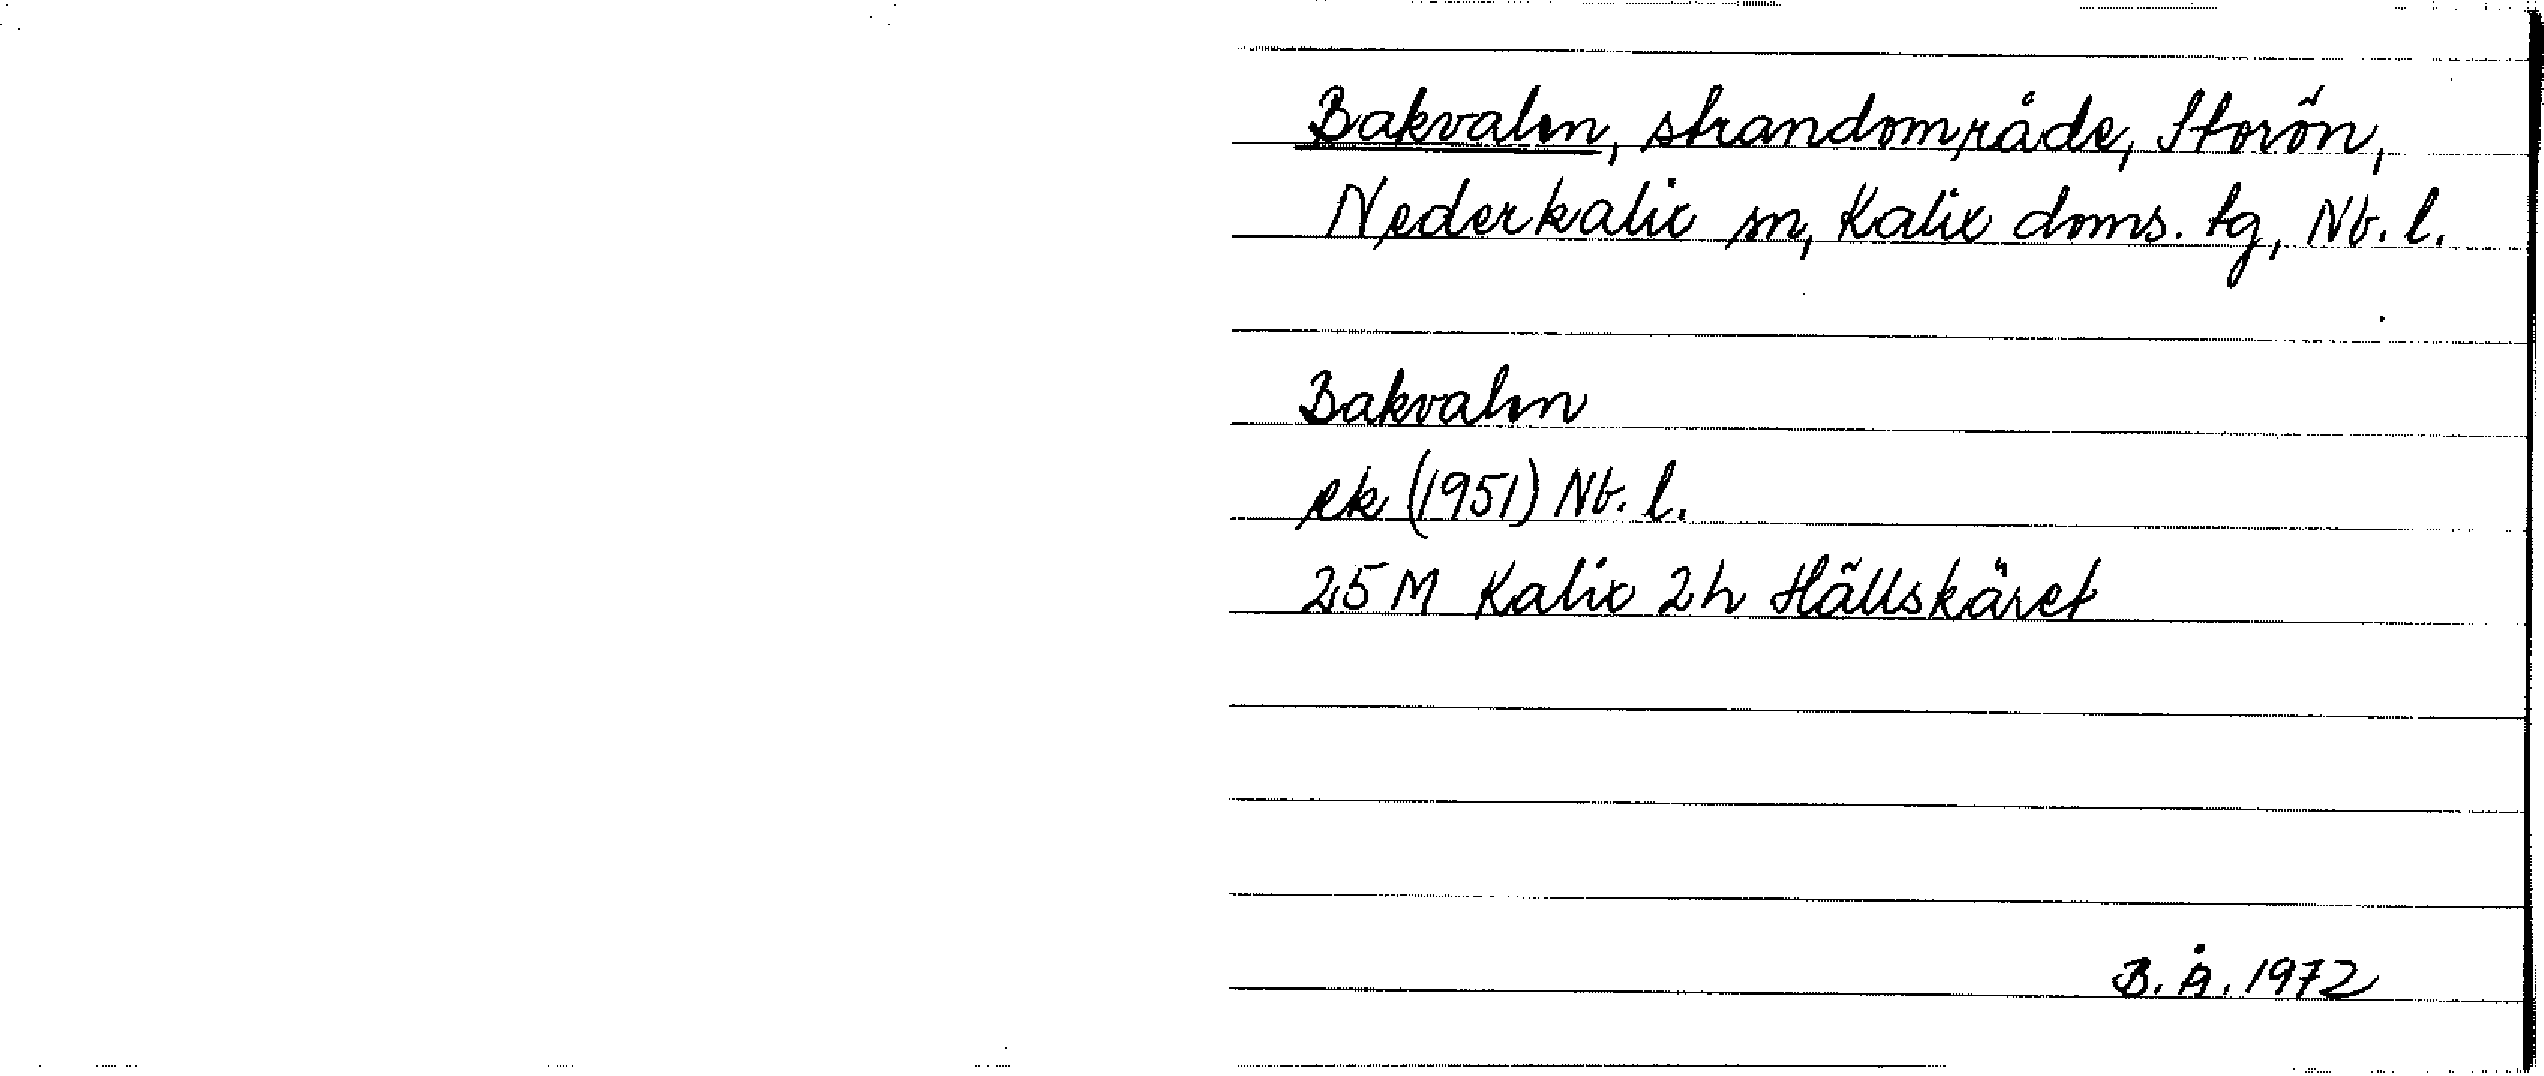 Bakvalen, strandområde, Storön,
Nederkalix sn, Kalix doms. tg, Nb. l.
Bakvalen
ek (1951) Nb. l.
25 M Kalix 2h Hällskäret
B. Å. 1972